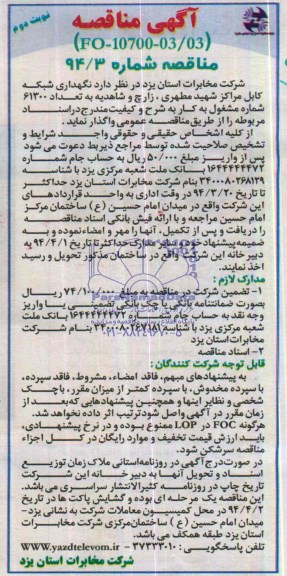 آگهی مناقصه
نوبت دوم
(FO-10700-03/03)
مناقصه شماره ۹۴/۳
شرکت مخابرات استان یزد در نظر دارد نگهداری شبکه
کابل مراکز شهید مطهری ، زارچ و شاهدیه به تعداد ۶۱۳۰۰
شماره مشغول به کار به شرح و کیفیت مندرج در اسناد
مربوطه را از طریق مناقصه عمومی واگذار نماید .
از کلیه اشخاص حقیقی و حقوقی واجد شرایط و
تشخیص صلاحیت شده توسط مراجع ذیربط دعوت می شود
پس از واریز مبلغ ۵۰/۰۰۰ ریال به حساب جام شماره
۱۶۴۴۴۴۴۴۷۲ بانک ملت شعبه مرکزی یزد با شناسه
۳۴۰۰۰۸۰۲۶۸۱۲۹ بنام شرکت مخابرات استان یزد حداکثر
تا تاریخ ۹۴/۳/۲۰ در وقت اداری به واحد قراردادهای
این شرکت واقع در میدان امام حسین (ع) ساختمان مرکز
امام حسین مراجعه و با ارائه فیش بانکی اسناد مناقصه
را دریافت و پس از تکمیل، آنها را مهر و امضاء نموده و به
ضمیمه پیشنهاد خود و سایر مدارک حداکثر تا تاریخ ۹۴/۴/۱ به
دبیر خانه این شرکت واقع در ساختمان مذکور تحویل و رسید
اخذ نمایند.
مدارک لازم :
۱- تضمین شرکت در مناقصه به مبلغ ۷۴/۱۰۰/۰۰۰ ریال
بصورت ضمانتنامه بانکی، چک بانکی تضمینی یا واریز
وجه نقد به حساب جام شماره ۱۶۴۴۴۴۴۴۷۲ بانک ملت
شعبه مرکزی یزد با شناسه ۳۴۰۰۰۸۰۲۶۷۱۸۱ بنام شرکت
مخابرات استان یزد
۲- اسناد مناقصه
قابل توجه شرکت کنندگان :
به پیشنهادهای مبهم، فاقد امضاء، مشروط، فاقد سپرده،
با سپرده مخدوش، با سپرده کمتر از میزان مقرر، باچک
شخصی و نظایر اینها و همچنین پیشنهادهایی که بعد از
زمان مقرر در آگهی واصل شود ترتیب اثر داده نخواهد شد.
هرگونه FOC در LOP ممنوع بوده و در نرخ پیشنهادی،
باید ارزش قیمت تخفیف و موارد رایگان در کل اجزاء
مناقصه سرشکن شود.
در صورت درج آگهی در روزنامه استانی ملاک زمان توزیع
اسناد و تحویل آنها به دبیر خانه این شرکت
تاریخ چاپ در روزنامه کثیرالانتشار سراسری می باشد.
این مناقصه یک مرحله ای بوده و گشایش پاکت ها در تاریخ
۹۴/۴/۲ در محل کمیسیون معاملات شرکت به نشانی یزد-
میدان امام حسین (ع) ساختمان مرکزی شرکت مخابرات
استان یزد طبقه همکف می باشد.
تلفن پاسخگویی : ۳۷۳۳۳۰۱۰ - www.yazdtelevom.ir
شرکت مخابرات استان یزد